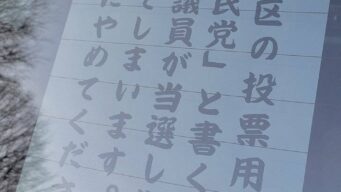 区の投票用
民党」と書く
議員が当選し
てしまいます。
にやめてくださ